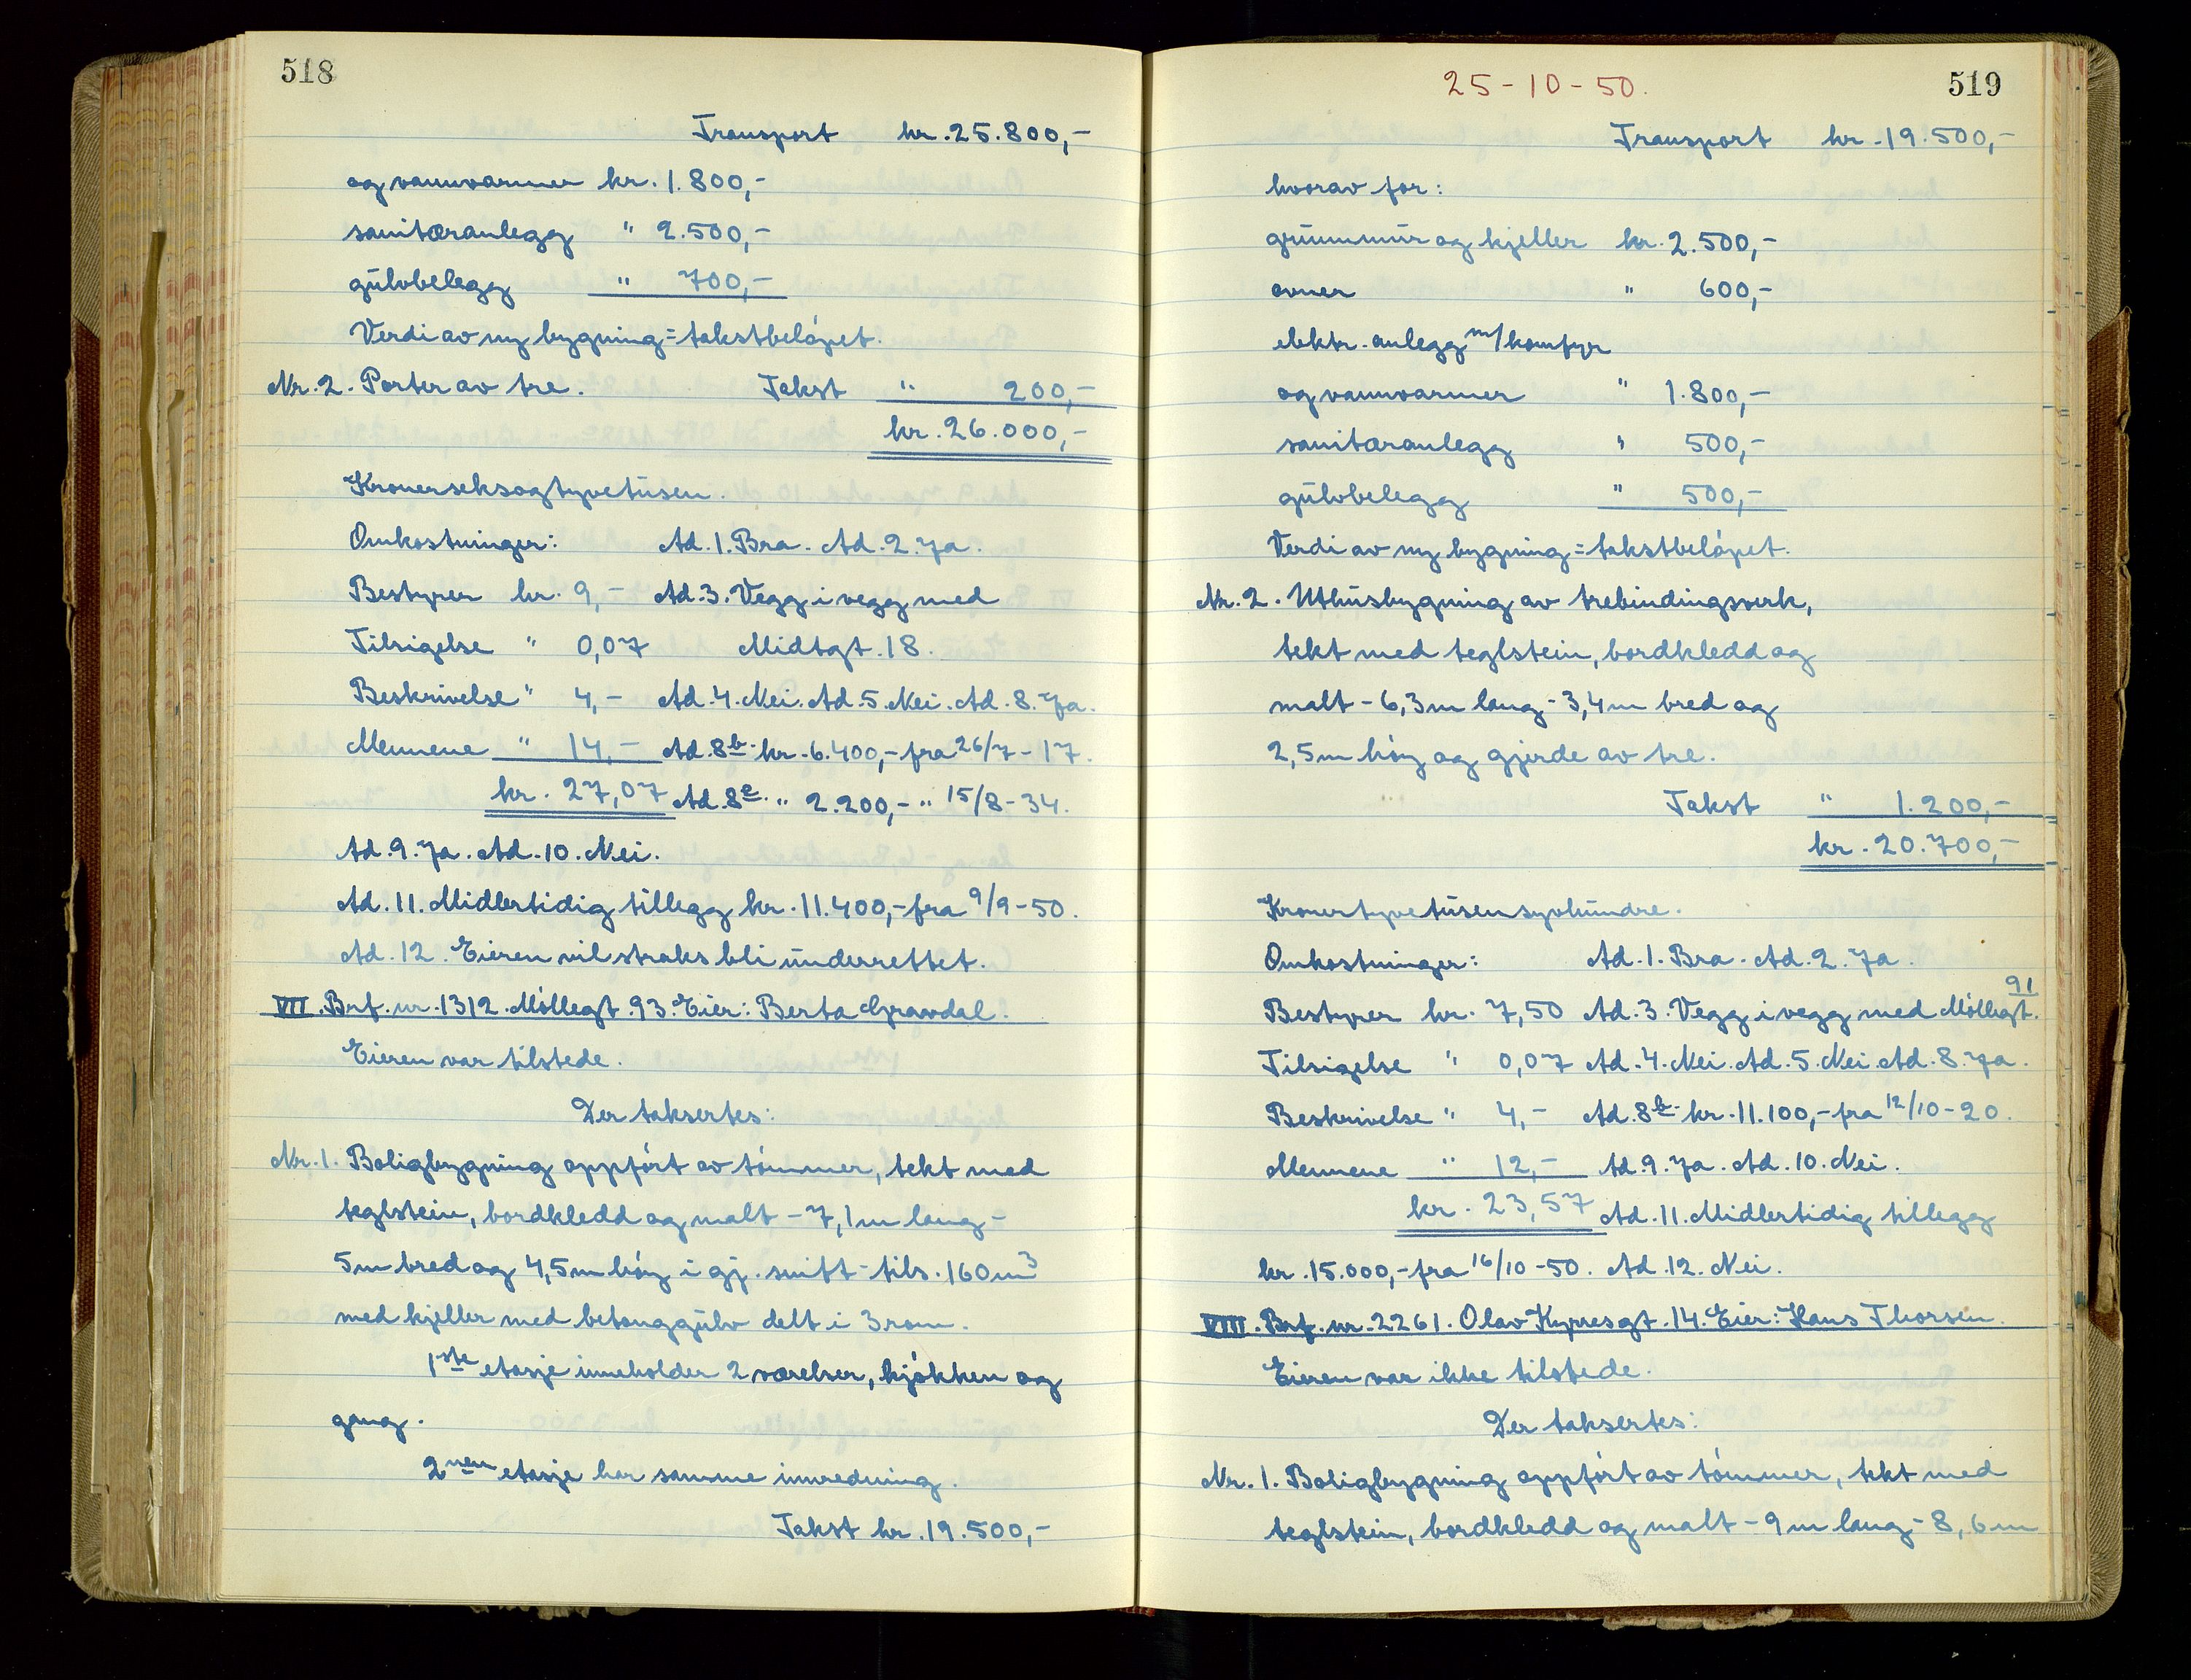 518
Transport kr. 25.800,-
og vannvarmer kr. 1.800,-
sanitæranlegg " 2.500,-
gulvbelegg " 700,-
Verdi av ny bygning = takstbeløpet.
Nr. 2. Porter av tre. Takst " 200,-
kr. 26.000,-
Kronerseksogtyvetusen.
Omkostninger: Ad. 1. Bra. Ad. 2. Ja.
Bestyrer kr. 9,- Ad. 3. Vegg i vegg med
Tilsigelse " 0,07 Midtgt. 18.
Beskrivelse " 4,- Ad. 4. Nei. Ad. 5. Nei. Ad. 8. Ja.
Mennene " 14,- Ad. 8b. kr. 6.400,- fra 26/7-17.
kr. 27,07 Ad. 8e. " 2.200,- " 15/8-34.
Ad. 9. Ja. Ad. 10. Nei.
Ad. 11. Midlertidig tillegg kr. 11.400,- fra 9/9-50.
Ad. 12. Eieren vil straks bli underrettet.
VII. Brf. nr. 1312. Møllegt. 93. Eier: Berta Gravdal.
Eieren var tilstede.
Der taksertes:
Nr. 1. Boligbygning oppført av tømmer, tekt med
teglstein, bordkledd og malt - 7,1 m lang -
5 m bred og 4,5 m høy i gj. snitt - tils. 160 m3
med kjeller med betonggulv delt i 3 rom.
1ste etasje inneholder 2 værelser, kjøkken og
gang.
2nen etasje har samme innredning.
Takst kr. 19.500,-
25-10-50.
519
Transport kr. 19.500,-
hvorav for:
grunnmur og kjeller kr. 2.500,-
ovner " 600,-
elektr. anlegg m/komfyr
og vannvarmer " 1.800,-
sanitæranlegg " 500,-
gulvbelegg " 500,-
Verdi av ny bygning = takstbeløpet.
Nr. 2. Uthusbygning av trebindingsverk,
tekt med teglstein, bordkledd og
malt - 6,3 m lang - 3,4 m bred og
2,5 m høy og gjerde av tre.
Takst " 1.200,-
kr. 20.700,-
Kronertyvetusensyvhundre.
Omkostninger: Ad. 1. Bra. Ad. 2. Ja.
Bestyrer kr. 7,50 Ad. 3. Vegg i vegg med Møllegt. 91
Tilsigelse " 0,07 Ad. 4. Nei. Ad. 5. Nei. Ad. 8. Ja.
Beskrivelse " 4,- Ad. 8b. kr. 11.100,- fra 12/10-20.
Mennene " 12,- Ad. 9. Ja. Ad. 10. Nei.
kr. 23,57 Ad. 11. Midlertidig tillegg
kr. 15.000,- fra 16/10-50. Ad. 12. Nei.
VIII. Brf. nr. 2261. Olav Kyrresgt. 14. Eier: Hans Thorsen.
Eieren var ikke tilstede.
Der taksertes:
Nr. 1. Boligbygning oppført av tømmer, tekt med
teglstein, bordkledd og malt - 9 m lang - 8,6 m